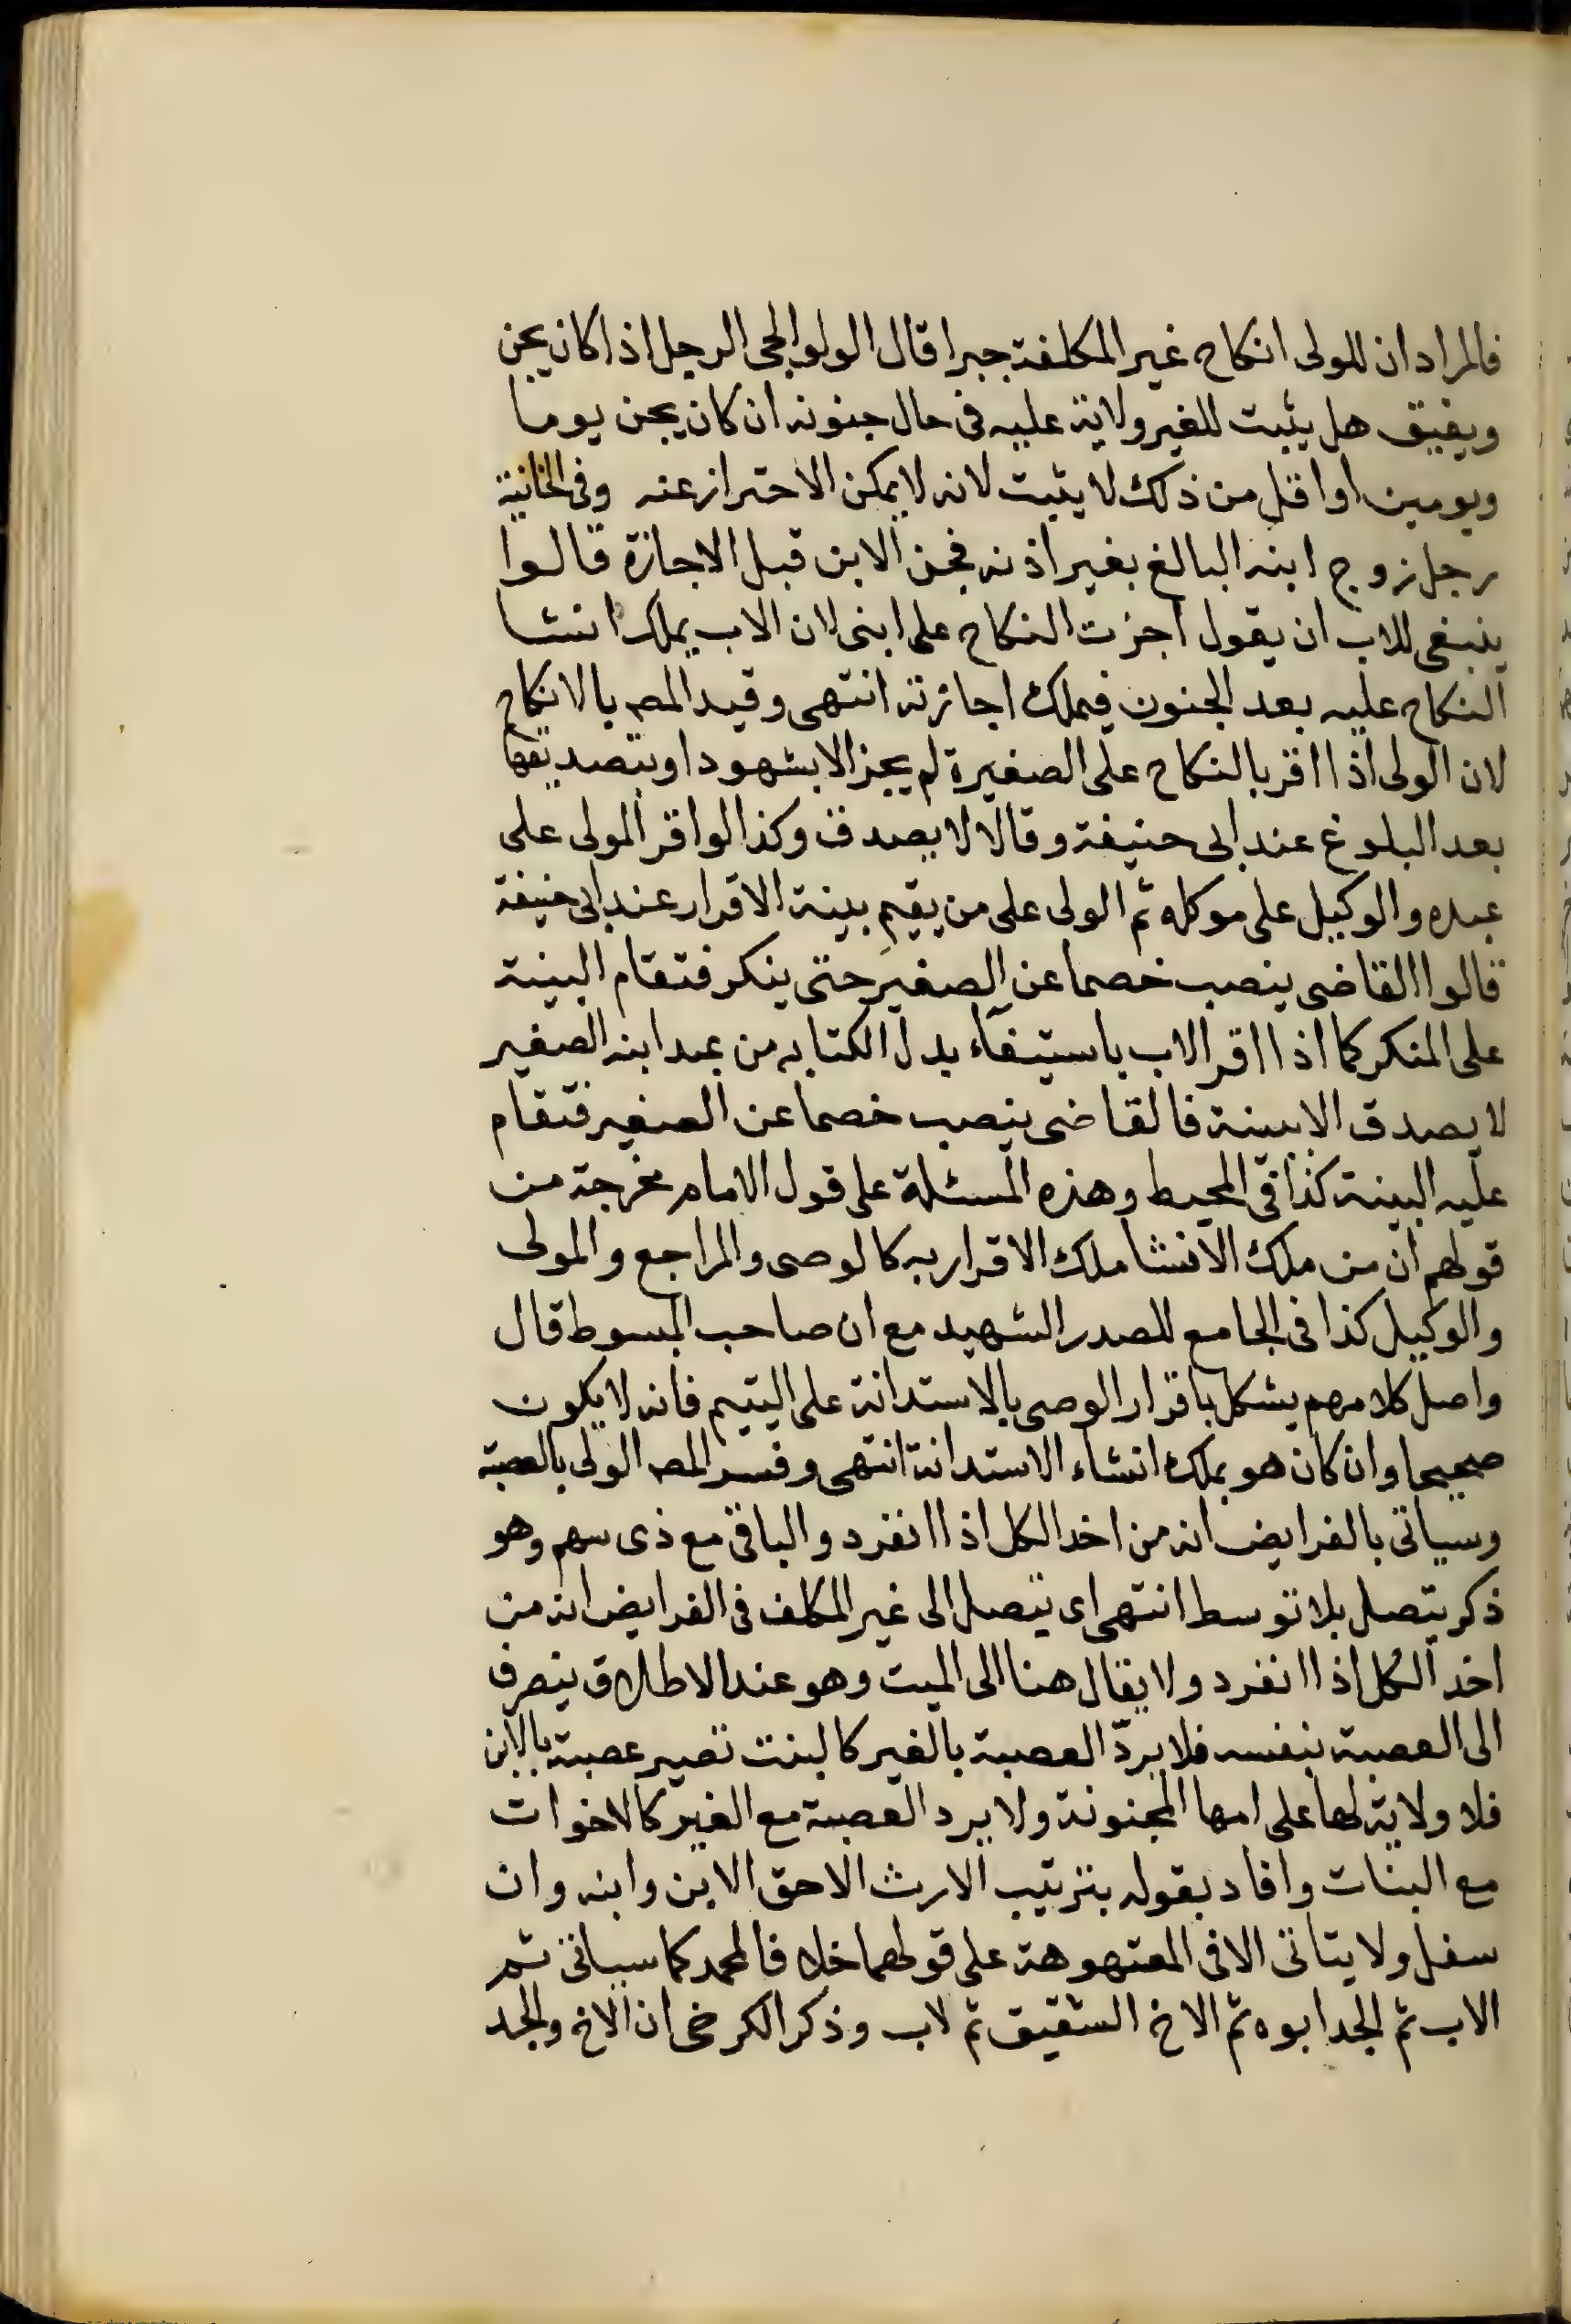 فالمراد ان للولى انكاح غير المكلفة جبرا قال الولوالجى الرجل اذا كان يجن
ويفيق هل يثبت للغير ولاية عليه فى حال جنونه ان كان يجن يوما
ويومين او اقل من ذلك لا يثبت لانه لا يمكن الاحتراز عنه وفى الخانية
رجل زوج ابنه البالغ بغير اذنه فجن الابن قبل الاجازة قالوا
ينبغى للاب ان يقول اجزت النكاح على ابنى لان الاب يملك انشا
النكاح عليه بعد الجنون فيملك اجازته انتهى وقيد المص بالانكاح
لان الولى اذا اقر بالنكاح على الصغيرة لم يجز الا بشهود او بتصديقها
بعد البلوغ عند ابى حنيفة وقالا لا يصدق وكذا لو اقر المولى على
عبده والوكيل على موكله ثم الولى على من يقيم بينة الاقرار عند ابى حنيفة
قالوا القاضى ينصب خصما عن الصغير حتى ينكر فتقام البينة
على المنكر كما اذا اقر الاب باستيفاء بدل الكتابه من عبد ابنه الصغير
لا يصدق الا ببينة فالقاضى ينصب خصما عن الصغير فتقام
عليه البينة كذا فى المحيط وهذه المسئلة على قول الامام مخرجة من
قولهم ان من ملك الانشا ملك الاقرار به كالوصى والمراجع والمولى
والوكيل كذا فى الجامع للصدر الشهيد مع ان صاحب المبسوط قال
واصل كلامهم يشكل باقرار الوصى بالاستدانة على اليتيم فانه لا يكون
صحيحا وان كان هو يملك انشاء الاستدانة انتهى وفسر المص الولى بالعصبة
وسياتى بالفرايض انه من اخذ الكل اذا انفرد والباقى مع ذى سهم وهو
ذكر يتصل بلا توسط انتهى اى يتصل الى غير المكلف فى الفرايض انه من
اخذ الكل اذا انفرد ولا يقال هنا الى الميت وهو عند الاطلاق ينصرف
الى العصبة بنفسه فلا يردّ العصبة بالغير كالبنت تصير عصبة بالابن
فلا ولاية لها على امها المجنونة ولا يرد العصبة مع الغير كالاخوات
مع البنات وافاد بقوله بترتيب الارث الاحق الابن وابنه وان
سفل ولا يتاتى الا فى المعتهوهة على قولهما خلا فا لمحمد كما سياتى ثم
الاب ثم الجد ابوه ثم الاخ الشقيق ثم لاب وذكر الكرخى ان الاخ والجد